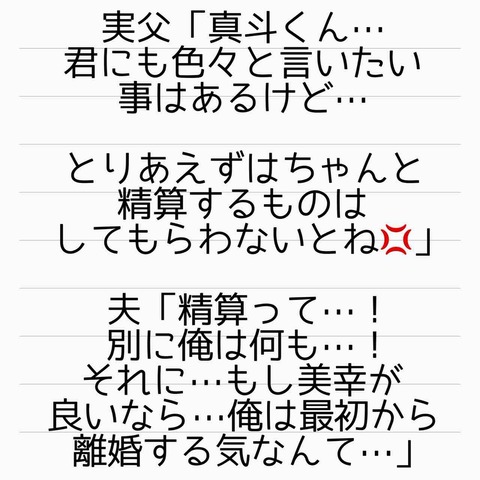 実父「真斗くん…
君にも色々と言いたい
事はあるけど…
とりあえずはちゃんと
精算するものは
してもらわないとね💢」
夫「精算って…！
別に俺は何も…！
それに…もし美幸が
良いなら…俺は最初から
離婚する気なんて…」